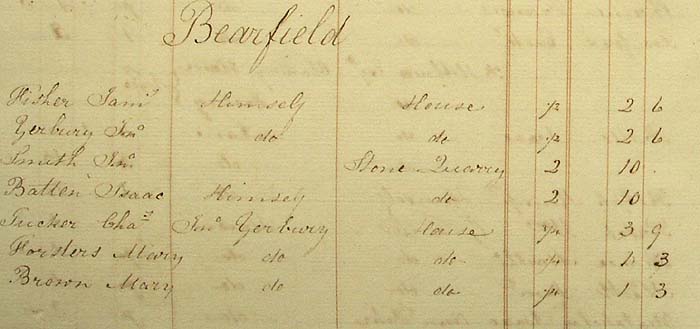 Bearfield
Fisher Sam.l Himself House p 2 6
Yerbury Jn.o do do p 2 6
Smith Jn.o Stone Quarry 2 10.
Batten Isaac Himself do 2 10
Tucker Cha.s Jn.o Yerbury House p 3 9
Forsters Mary do do p 1 3
Brown Mary do do p 1 3